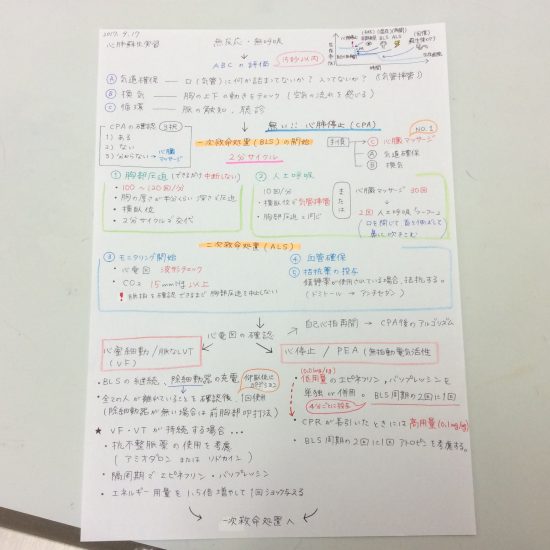 2017. 9. 17
心肺蘇生実習
無反応・無呼吸
ABCの評価 15秒以内
Ⓐ 気道確保 ― 口(気管)に何か詰まってないか? 入ってないか? (気管挿管)
Ⓑ 換気 ― 胸の上下の動きをチェック (空気の流れを感じる)
Ⓒ 循環 ― 脈の触知、聴診
無い:: 心肺停止 (CPA)
CPAの確認 3択
1) ある
2) ない
3) 分からない→心臓マッサージ
一次救命処置(BLS)の開始
2分サイクル
手順
NO.1
Ⓒ 心臓マッサージ
Ⓐ 気道確保
Ⓑ 換気
① 胸部圧迫 (できるだけ中断しない)
・100〜120回/分
・胸の厚さが半分くらい深く圧迫
・横臥位
・2分サイクルで交代
② 人工呼吸
10回/分
・横臥位で気管挿管
・胸部圧迫と同じ
または
心臓マッサージ 30回
2回 人工呼吸
二次救命処置(ALS)
③ モニタリング開始
・心電図 波形チェック
・CO₂ 15mmHg以上
! 脈拍を確認できるまで胸部圧迫を中止しない
④ 血管確保
⑤ 拮抗薬の投与
鎮静薬が使用されている場合、拮抗する。
(ドミトール → アンチセダン)
心電図の確認
自己心拍再開 → CPA後のアルゴリズム
心室細動/脈なしVT
(VF)
・BLSの継続、除細動器の充電
・全ての人が離れていることを確認後、1回使用
(除細動器が無い場合は前胸部叩打法)
★ VF・VTが持続する場合...
・抗不整脈薬の使用を考慮
(アミオダロン または リドカイン)
・隔周期でエピネフリン・バソプレッシン
・エネルギー用量を1.5倍増やして1回ショック与える
心停止 / PEA (無拍動電気活性
(0.01mg/kg)
・低用量のエピネフリン、バソプレッシンを
単独or併用。BLS周期の2回に1回
4分ごとに投与
・CPRが長引いたときには高用量(0.1mg/kg)
・BLS周期の2回に1回アトロピンを考慮する。
一次救命処置へ